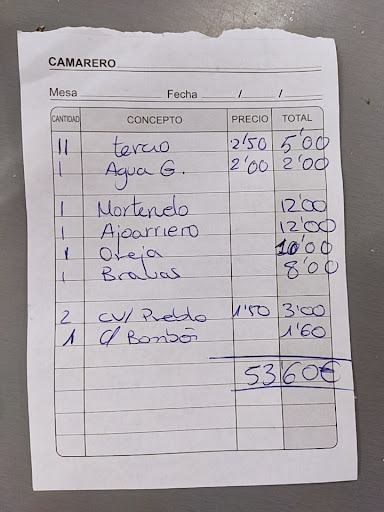 CAMARERO
Mesa Fecha / /
CANTIDAD CONCEPTO PRECIO TOTAL
11 tercio 2'50 5'00
1 Agua G. 2'00 2'00
1 Morteruelo 12'00
1 Ajoarriero 12'00
1 Oreja 10'00
1 Bravas 8'00
2 CV/ Pueblo 1'50 3'00
1 C/ Bombón 1'60
53'60€